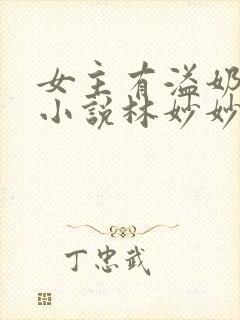 女主有溢奶
小说林妙妙
丁忠武